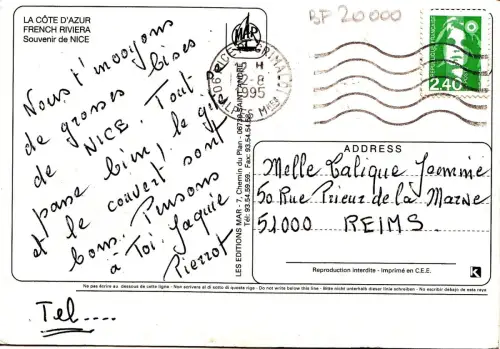 LA CÔTE D'AZUR
FRENCH RIVIERA
Souvenir de NICE
BF 20000
MAR
Nous t'envoyons
de grosses bises
de NICE. Tout
passe bien, le gîte
et le couvert sont
bons. Pensons
à Toi. Jaquie
Pierrot
Tel....
LES EDITIONS MAR - 7, Chemin du Plan - 06728 SAINT-ANDRÉ
Tél: 93.54.59.69. Fax: 93.54.54.58
NICE GRIMALDI
5 H
-8
1995
ALPES MMES
2,40
ADDRESS
Melle Calique Jasmine
50 Rue Prieur de la Marne
51000 REIMS.
Reproduction interdite - Imprimé en C.E.E.
K
Ne pas écrire au dessous de cette ligne - Non scrivere al di sotto di questa riga - Do not write below this line - Bitte nicht unterhalb dieser linie schreiben - No escribir debajo de esta raya